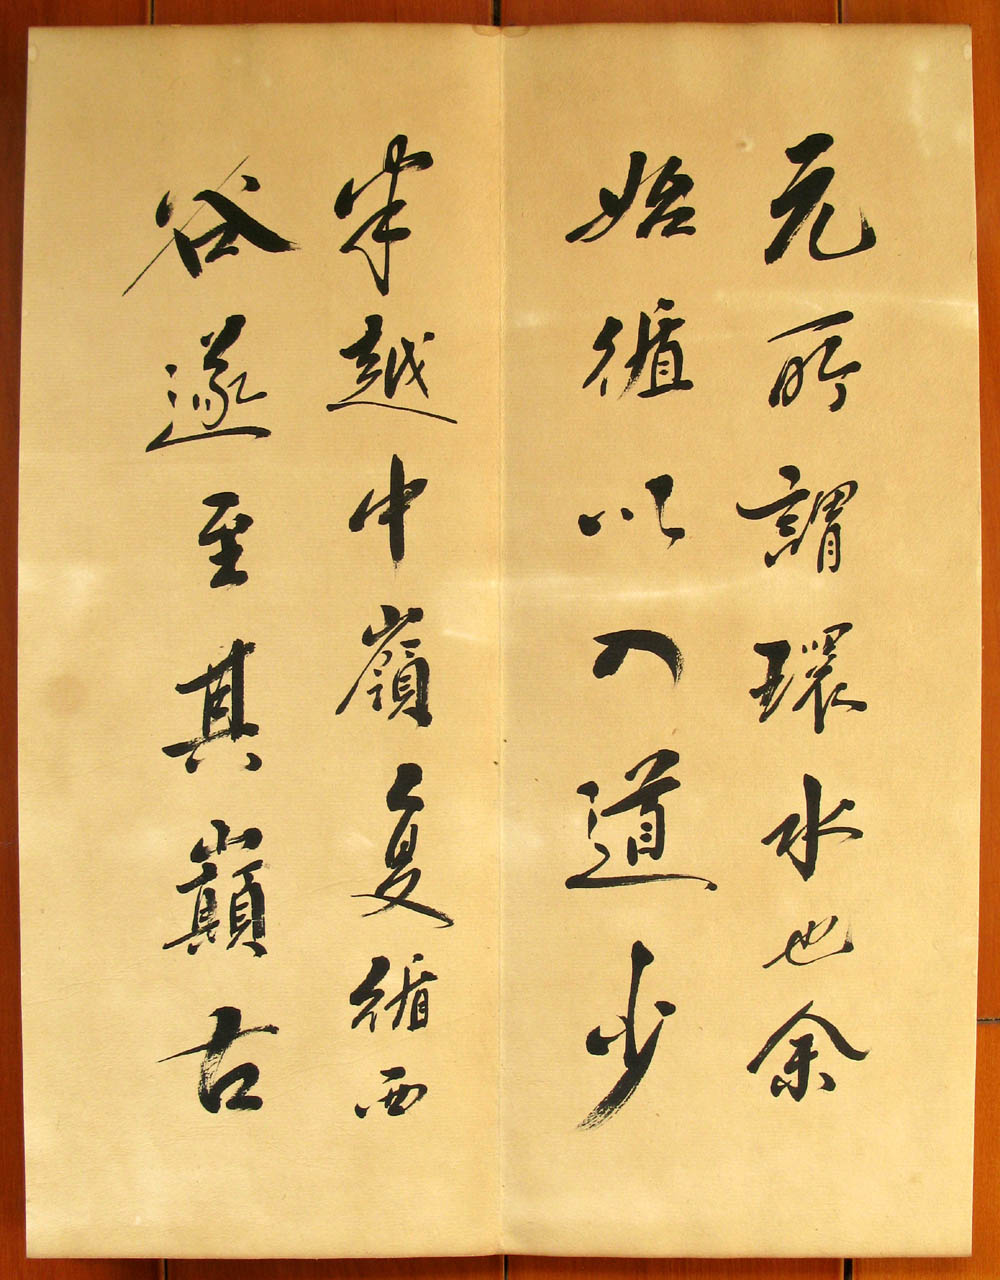 元所謂環水也余
始循以入道少
半越中嶺复循西
谷遂至其巔古